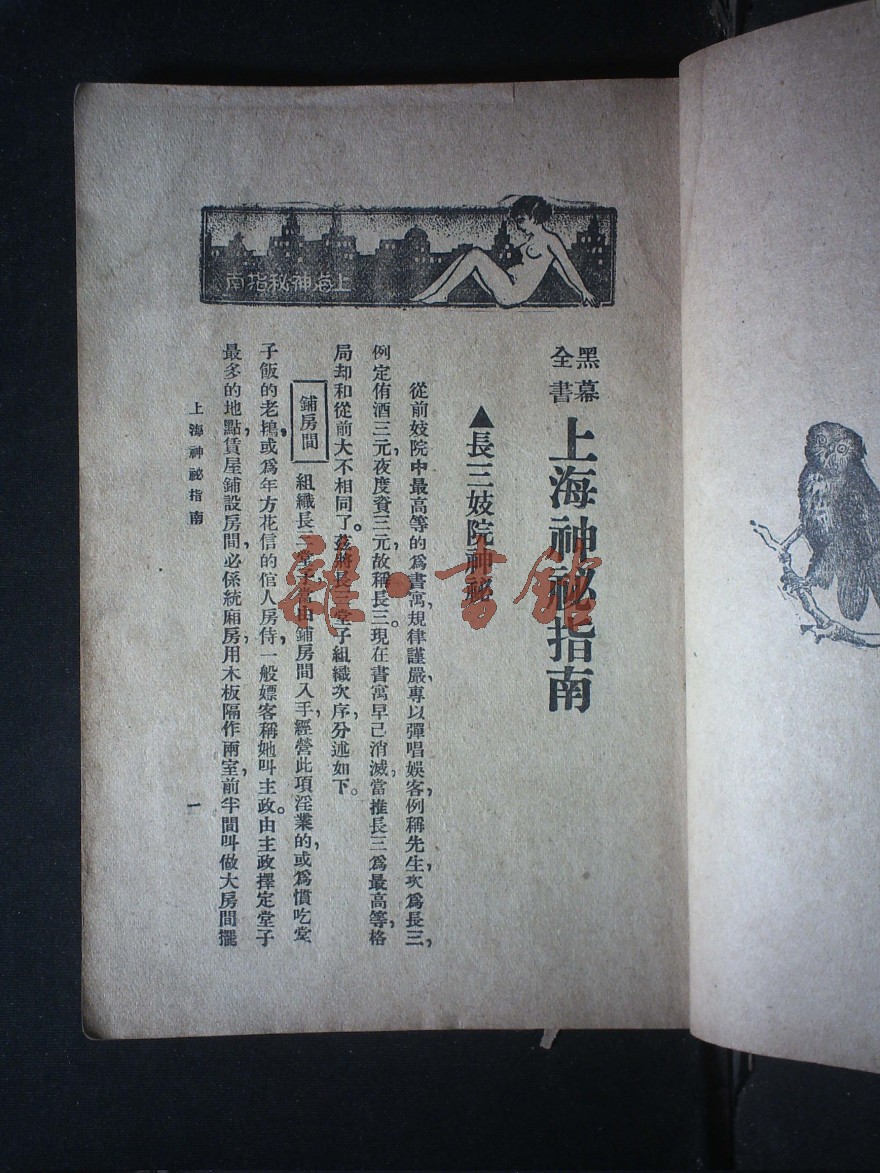 上海神秘指南
黑幕
全書
上海神祕指南
▲長三妓院神祕
從前妓院中最高等的爲書寓，規律謹嚴，專以彈唱娛客，例稱先生，次爲長三，
例定侑酒三元，夜度資三元，故稱長三。現在書寓早已消滅，當推長三爲最高等，格
局却和從前大不相同了。茲將長三堂子組織次序，分述如下。
鋪房間
組織長三堂子，當由鋪房間入手，經營此項淫業的，或爲慣吃堂
子飯的老鴇，或爲年方花信的倌人房侍，一般嫖客稱她叫主政。由主政擇定堂子
最多的地點，賃屋鋪設房間，必係統廂房，用木板隔作兩室，前半間叫做大房間，擺
上海神祕指南
一
雜·書館